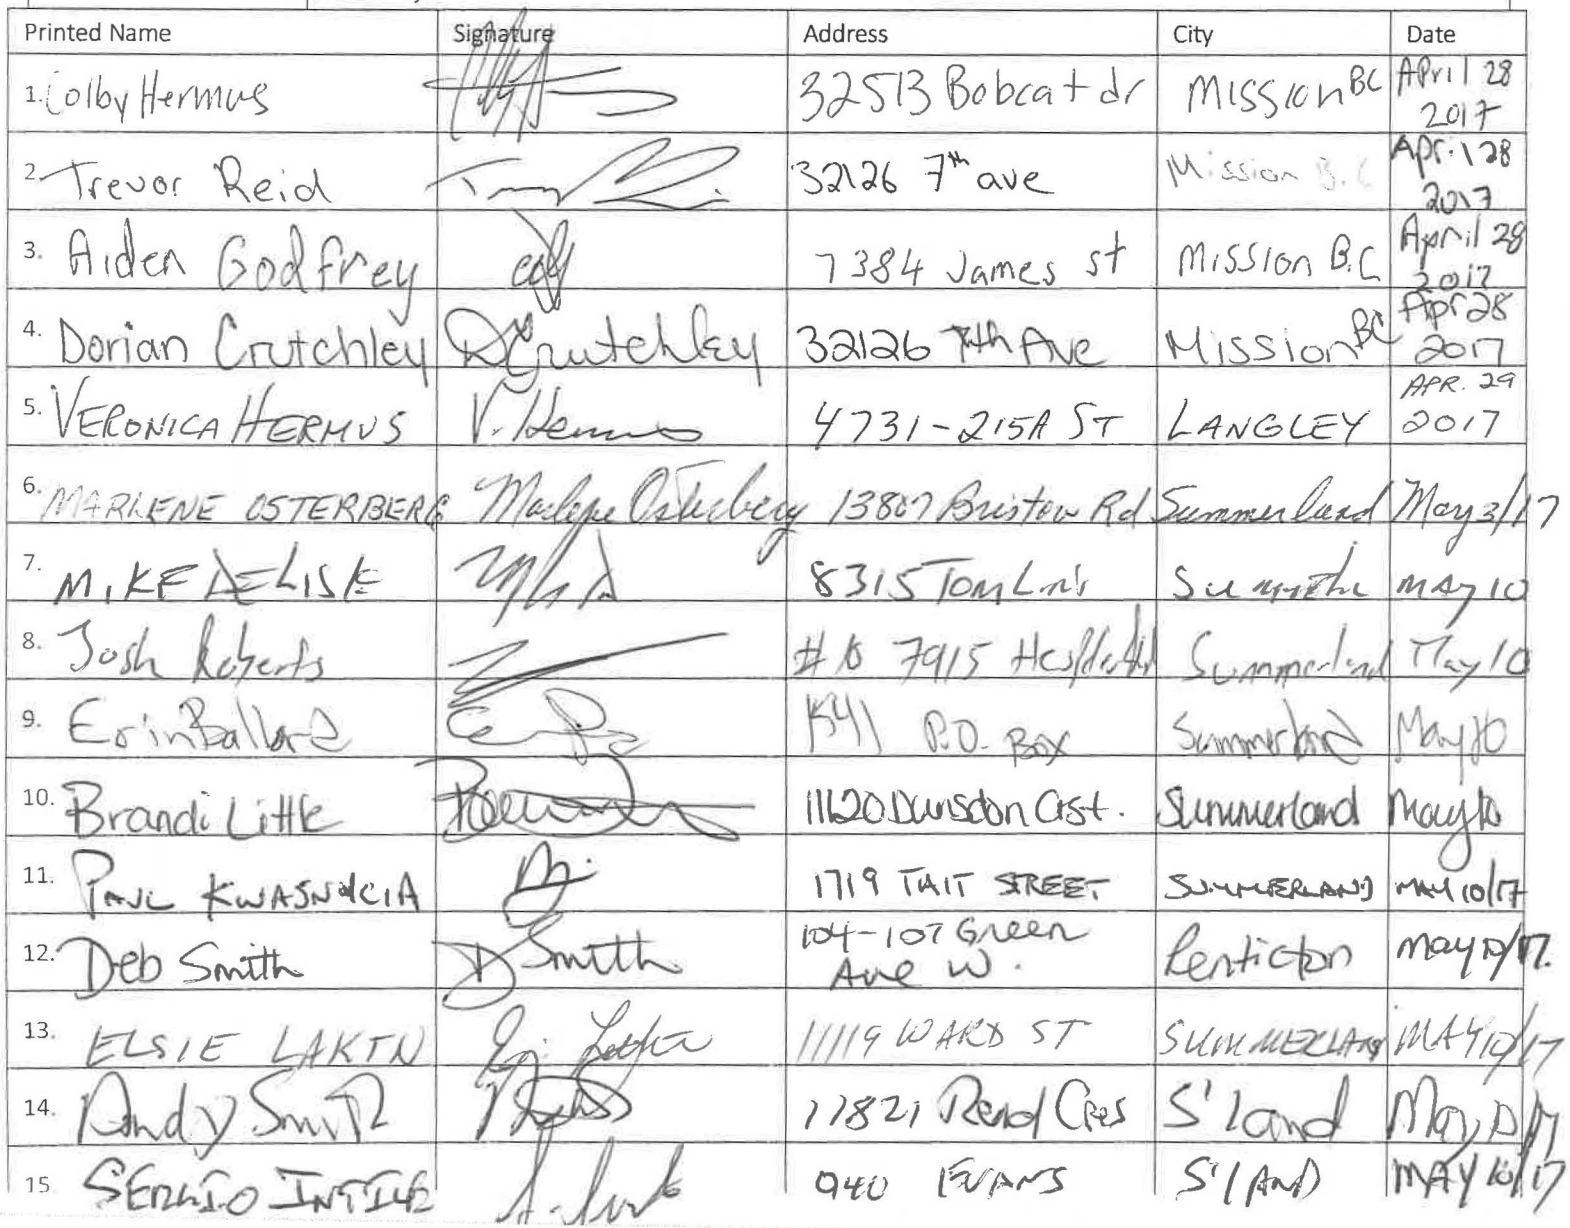 Printed Name Signature Address City Date
1. Colby Hermus 32513 Bobcat dr Mission BC April 28 2017
2. Trevor Reid 32126 7th ave Mission B.C April 28 2017
3. Aiden Godfrey 7384 James st Mission B.C April 28 2017
4. Dorian Crutchley DCrutchley 32126 7th Ave Mission BC Apr 28 2017
5. VERONICA HERMUS V. Hermus 4731-215A ST LANGLEY APR. 29 2017
6. MARLENE OSTERBERG Marlene Osterberg 13807 Bristow Rd Summerland May 3/17
7. MIKE DELISLE 8315 MAY 10
8. Josh Roberts 7915 Summerland May 10
9. Erin Ballard P.O. Box Summerland May 10
10. Brandi Little 11620 Dunsdon Crst. Summerland May 10
11. PAUL 1719 TAIT STREET SUMMERLAND MAY 10/17
12. Deb Smith D Smith 104-107 Green Ave W. Penticton May 10/17.
13. ELSIE LAKTN 11119 WARD ST SUMMERLAND MAY 10/17
14. Andy Smith 11821 Cres S'land May 10/17
15 SERGIO 940 EVANS S'LAND MAY 10/17